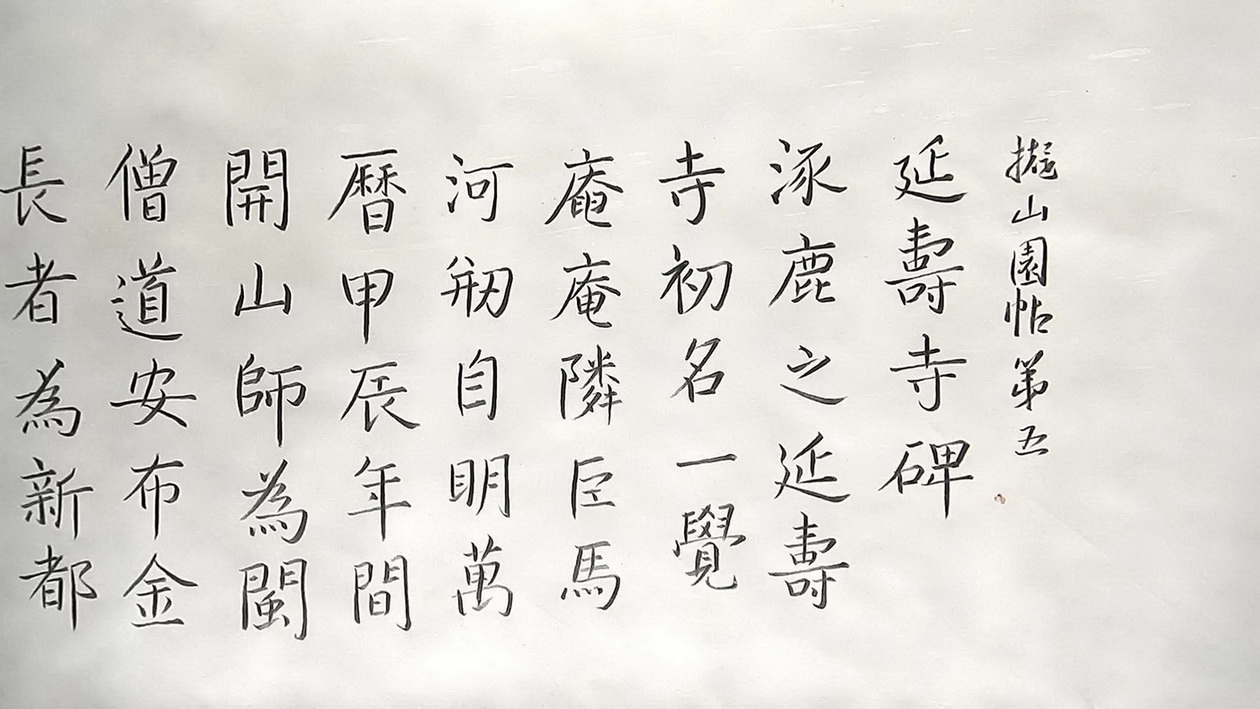 擬山園帖第五
延壽寺碑
涿鹿之延壽
寺初名一覺
菴菴隣臣馬
河剏自明萬
曆甲辰年間
開山師為閩
僧道安布金
長者為新都